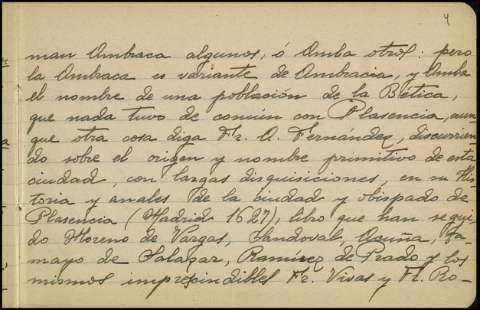 4
man Ambraca algunos, ó Amba otros: pero
la Ambraca es variante de Ambracia, y Amba
el nombre de una población de la Bética,
que nada tuvo de común con Plasencia, aun
que otra cosa diga Fr. A. Fernández, discurrien
do sobre el origen y nombre primitivo de esta
ciudad, con largas disquisiciones, en su His
toria y anales de la ciudad y obispado de
Plasencia (Madrid 1627), libro que han segui
do Moreno de Vargas, Sandoval, Acuña, Ta-
mayo de Salazar, Ramírez de Prado y los
mismos imprescindibles Fr. Vivas y Fr. Ro-